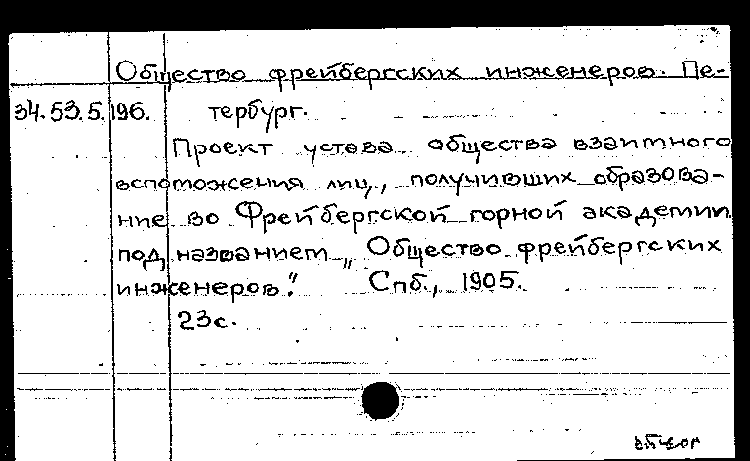 Общество фрейбергских инженеров. Пе-
34.53.5.196. тербург.
Проект устава общества взаимного
вспоможения лиц, получивших образова-
ние во Фрейбергской горной академии
под названием „Общество фрейбергских
инженеров".  Спб., 1905.
23с.